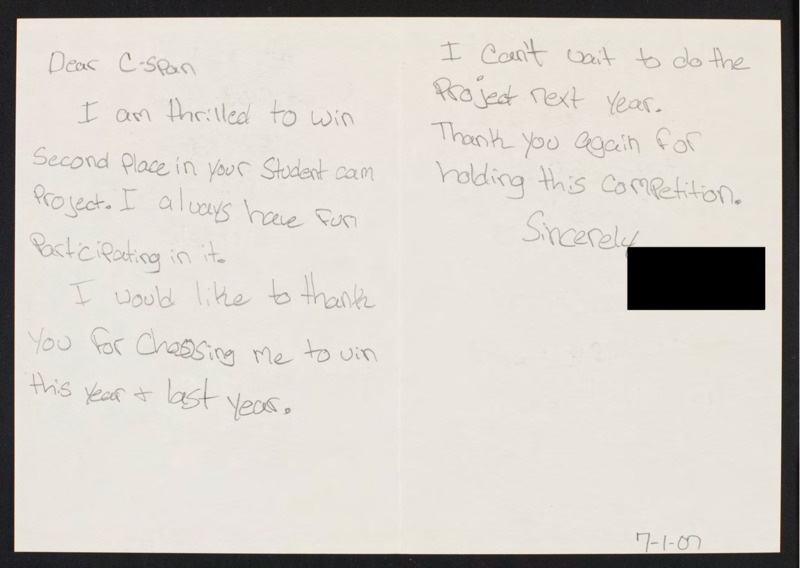 Dear C-Span
I am thrilled to win
Second Place in your Student cam
Project. I always have fun
Participating in it.
I would like to thank
you for choosing me to win
this year + last year.
I can't wait to do the
Project next year.
Thank you again for
holding this competition.
Sincerely
7-1-07